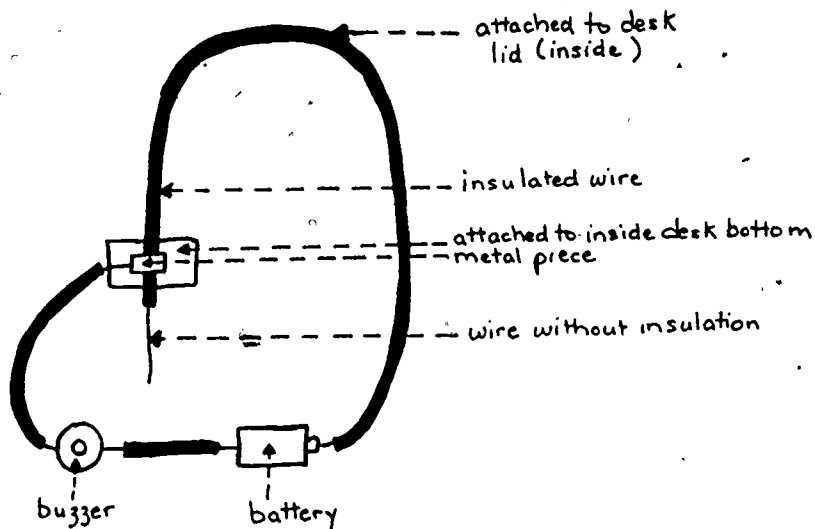 attached to desk
lid (inside)
insulated wire
attached to inside desk bottom
metal piece
wire without insulation
buzzer
battery